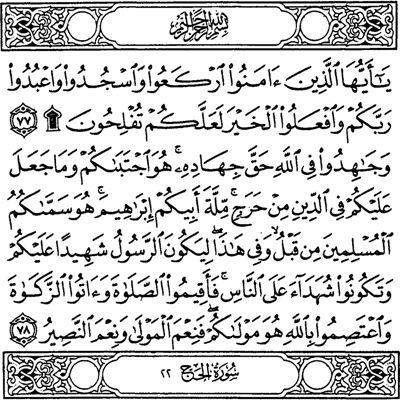 بِسْمِ ٱللَّهِ ٱلرَّحْمَٰنِ ٱلرَّحِيمِ
يَٰٓأَيُّهَا ٱلَّذِينَ ءَامَنُوا۟ ٱرْكَعُوا۟ وَٱسْجُدُوا۟ وَٱعْبُدُوا۟
رَبَّكُمْ وَٱفْعَلُوا۟ ٱلْخَيْرَ لَعَلَّكُمْ تُفْلِحُونَ ۩ ٧٧
وَجَٰهِدُوا۟ فِى ٱللَّهِ حَقَّ جِهَادِهِۦ ۚ هُوَ ٱجْتَبَىٰكُمْ وَمَا جَعَلَ
عَلَيْكُمْ فِى ٱلدِّينِ مِنْ حَرَجٍ ۚ مِّلَّةَ أَبِيكُمْ إِبْرَٰهِيمَ ۚ هُوَ سَمَّىٰكُمُ
ٱلْمُسْلِمِينَ مِن قَبْلُ وَفِى هَٰذَا لِيَكُونَ ٱلرَّسُولُ شَهِيدًا عَلَيْكُمْ
وَتَكُونُوا۟ شُهَدَآءَ عَلَى ٱلنَّاسِ ۚ فَأَقِيمُوا۟ ٱلصَّلَوٰةَ وَءَاتُوا۟ ٱلزَّكَوٰةَ
وَٱعْتَصِمُوا۟ بِٱللَّهِ هُوَ مَوْلَىٰكُمْ ۖ فَنِعْمَ ٱلْمَوْلَىٰ وَنِعْمَ ٱلنَّصِيرُ ٧٨
سُورَةُ الحَجّ ٢٢